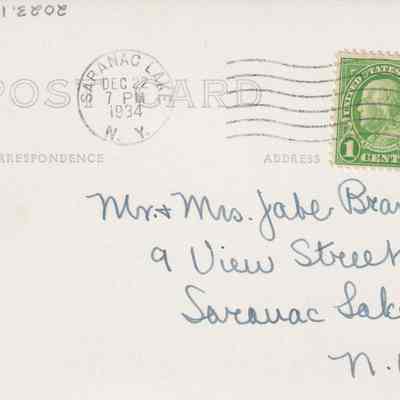 2023.1
POST CARD
SARANAC LAKE
DEC 22
7 PM
1934
N. Y.
UNITED STATES
1 CENT
RRESPONDENCE
ADDRESS
Mr. & Mrs. Jabe Bra
9 View Street
Saranac Lake
N.